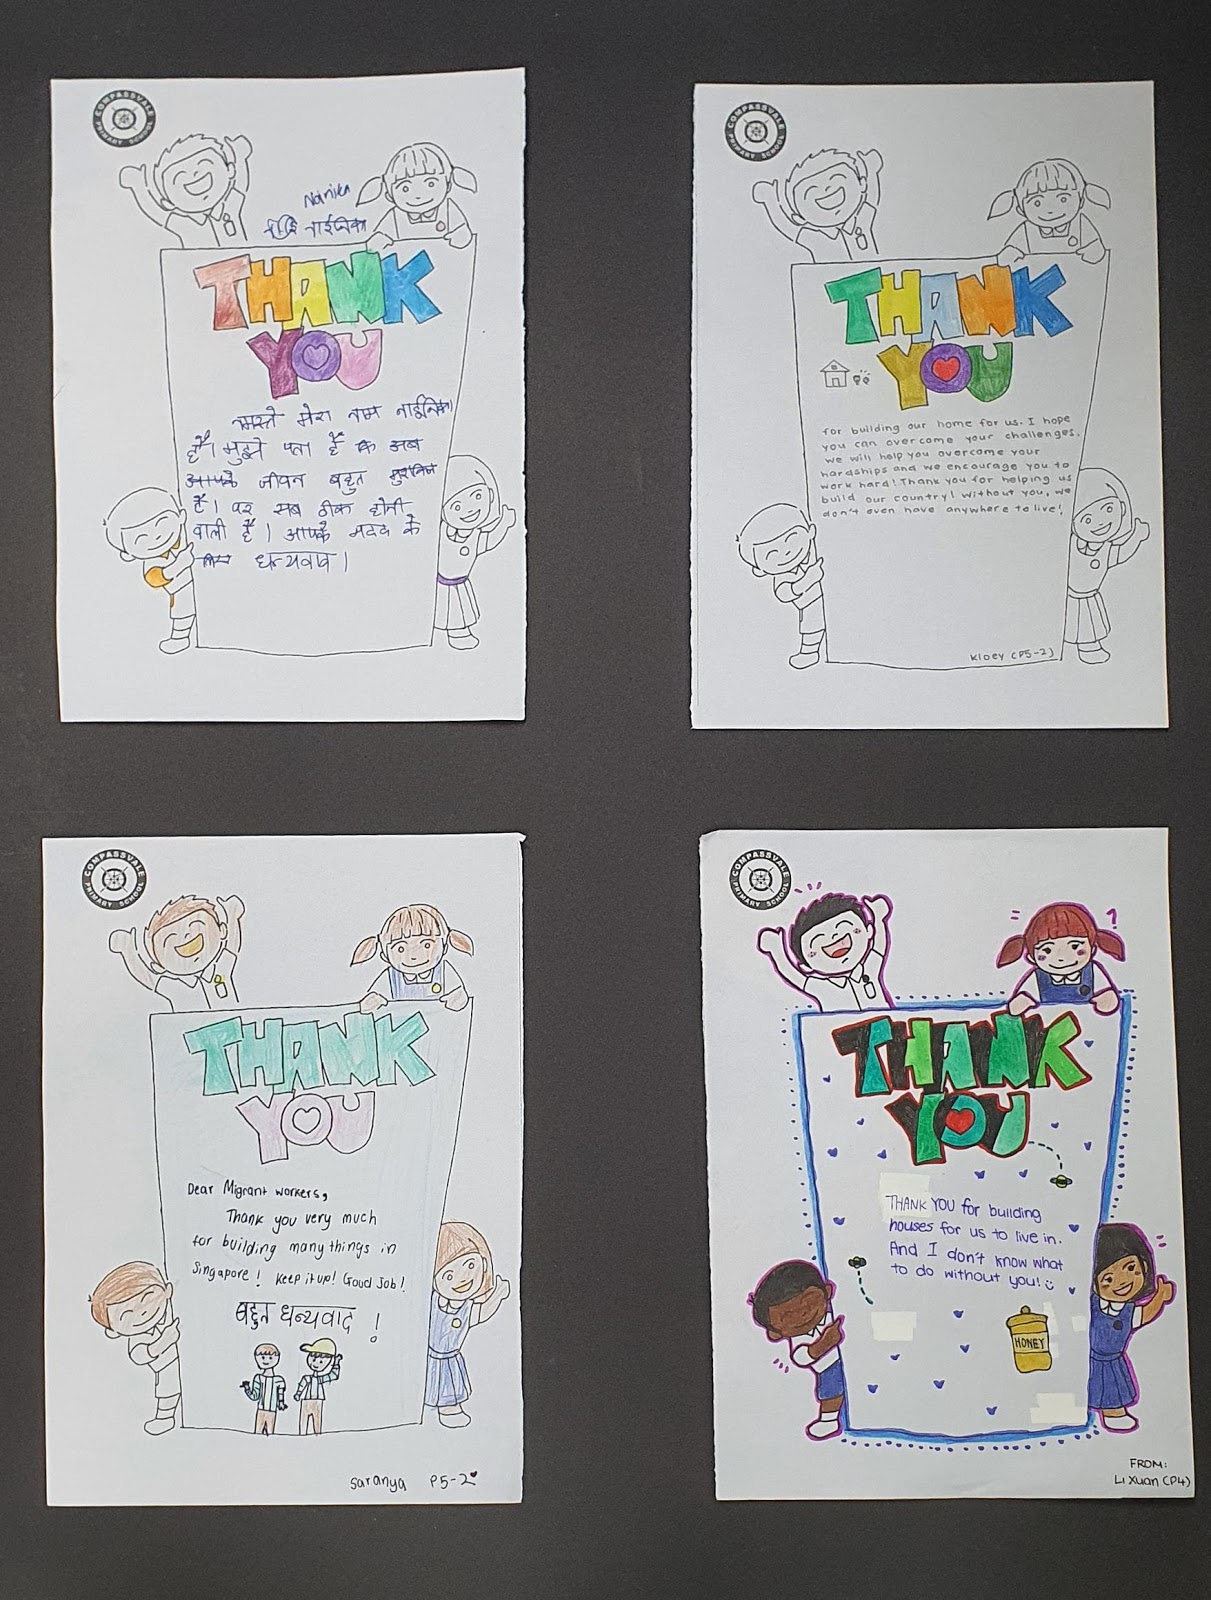 COMPASSVALE PRIMARY SCHOOL
Nainika
नाईनिका
THANK
YOU
नमस्ते मेरा नाम नाईनिका
है। मुझे पता है कि अब
आपके जीवन बहुत मुश्किल
है। पर सब ठीक होनी
वाली है। आपके मदद के
लिए धन्यवाद।
COMPASSVALE PRIMARY SCHOOL
THANK
YOU
for building our home for us. I hope
you can overcome your challenges.
we will help you overcome your
hardships and we encourage you to
work hard! Thank you for helping us
build our country! Without you, we
don't even have anywhere to live!
Kloey (P5-2)
COMPASSVALE PRIMARY SCHOOL
THANK
YOU
Dear Migrant workers,
Thank you very much
for building many things in
Singapore! Keep it up! Good Job!
बहुत धन्यवाद !
Saranya P5-2
COMPASSVALE PRIMARY SCHOOL
THANK
YOU
THANK YOU for building
houses for us to live in.
And I don't know what
to do without you!
HONEY
FROM:
Li Xuan (P4)